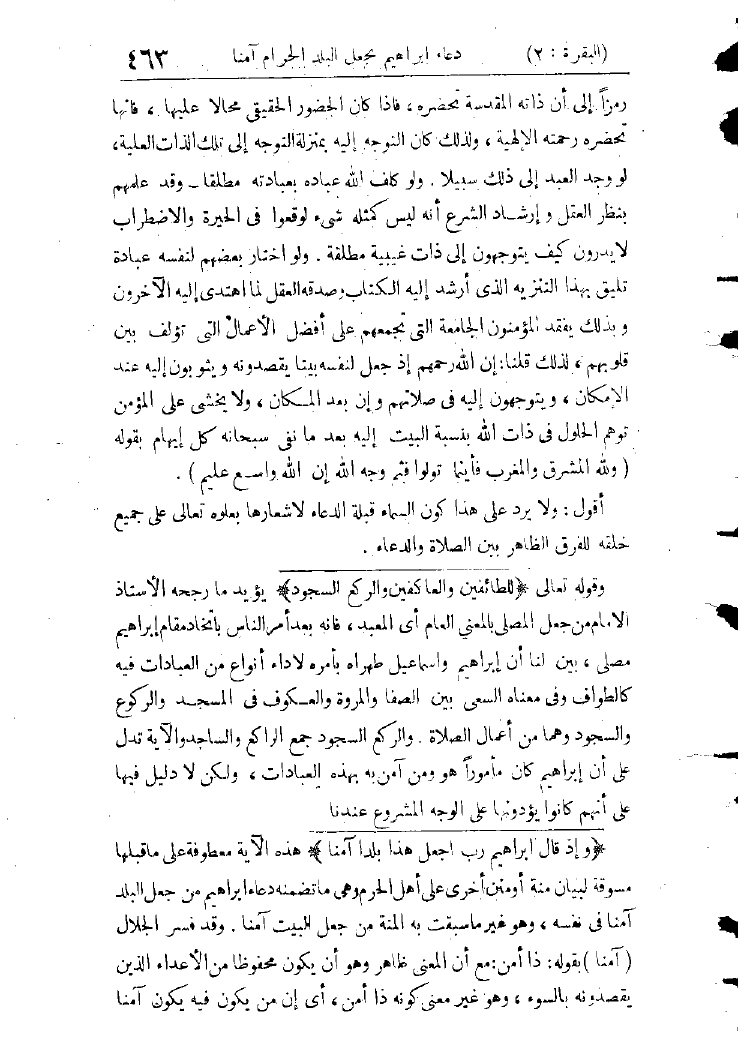 (البقرة : ٢) دعاء ابراهيم بجعل البلد الحرام آمنا ٤٦٣
رمزاً إلى أن ذاته المقدسة تحضره ، فاذا كان الحضور الحقيقي محالا عليها ، فانها
تحضره رحمته الإلهية ، ولذلك كان التوجه إليه بمنزلة التوجه إلى تلك الذات العلية ،
لو وجد العبد إلى ذلك سبيلا . ولو كلف الله عباده بعبادته مطلقا ـ وقد علمهم
بنظر العقل وإرشاد الشرع أنه ليس كمثله شيء لوقعوا في الحيرة والاضطراب
لا يدرون كيف يتوجهون إلى ذات غيبية مطلقة . ولو اختار بعضهم لنفسه عبادة
تليق بهذا التنزيه الذى أرشد إليه الكتاب وصدقه العقل لما اهتدى إليه الآخرون
وبذلك يفقد المؤمنون الجامعة التى تجمعهم على أفضل الأعمال التى تؤلف بين
قلوبهم ، لذلك قلنا : إن الله رحمهم إذ جعل لنفسه بيتا يقصدونه ويثوبون إليه عند
الإمكان ، ويتوجهون إليه فى صلاتهم وإن بعد المكان ، ولا يخشى على المؤمن
توهم الحلول فى ذات الله بنسبة البيت إليه بعد ما نفى سبحانه كل إيهام بقوله
( ولله المشرق والمغرب فأينما تولوا فثم وجه الله إن الله واسع عليم ) .
أقول : ولا يرد على هذا كون السماء قبلة الدعاء لاشعارها بعلوه تعالى على جميع
خلقه للفرق الظاهر بين الصلاة والدعاء .
وقوله تعالى ﴿للطائفين والعاكفين والركع السجود﴾ يؤيد ما رجحه الأستاذ
الامام من جعل المصلى بالمعنى العام أى المعبد ، فانه بعد أمر الناس باتخاد مقام إبراهيم
مصلى ، بين لنا أن إبراهيم واسماعيل طهراه بأمره لاداء أنواع من العبادات فيه
كالطواف وفى معناه السعى بين الصفا والمروة والعكوف فى المسجد والركوع
والسجود وهما من أعمال الصلاة . والركع السجود جمع الراكع والساجد والآية تدل
على أن إبراهيم كان مأموراً هو ومن آمن به بهذه العبادات ، ولكن لا دليل فيها
على أنهم كانوا يؤدونها على الوجه المشروع عندنا
﴿وإذ قال ابراهيم رب اجعل هذا بلدا آمنا﴾ هذه الآية معطوفة على ما قبلها
مسوقة لبيان منة أو منن أخرى على أهل الحرم وهى ما تضمنه دعاء ابراهيم من جعل البلد
آمنا فى نفسه ، وهو غير ما سيقت به المنة من جعل البيت آمنا . وقد فسر الجلال
( آمنا ) بقوله : ذا أمن : مع أن المعنى ظاهر وهو أن يكون محفوظا من الأعداء الذين
يقصدونه بالسوء ، وهو غير معنى كونه ذا أمن ، أى إن من يكون فيه يكون آمنا